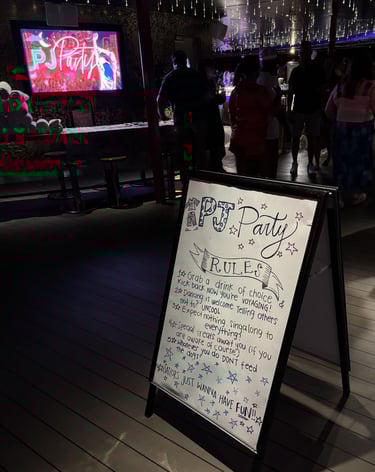 PJ Party
PJ Party
RULES
1★ Grab a drink of choice &
kick back now you're VOYAGING!
2★ Dancing is welcome telling others
not to? UNCOOL
3★ Expect nothing singalong to
everything!
4★ Special treats await you (if you
are aware of course)
5★ Whatever you do DON'T feed
the dogs!
JUST WANNA HAVE FUN!!